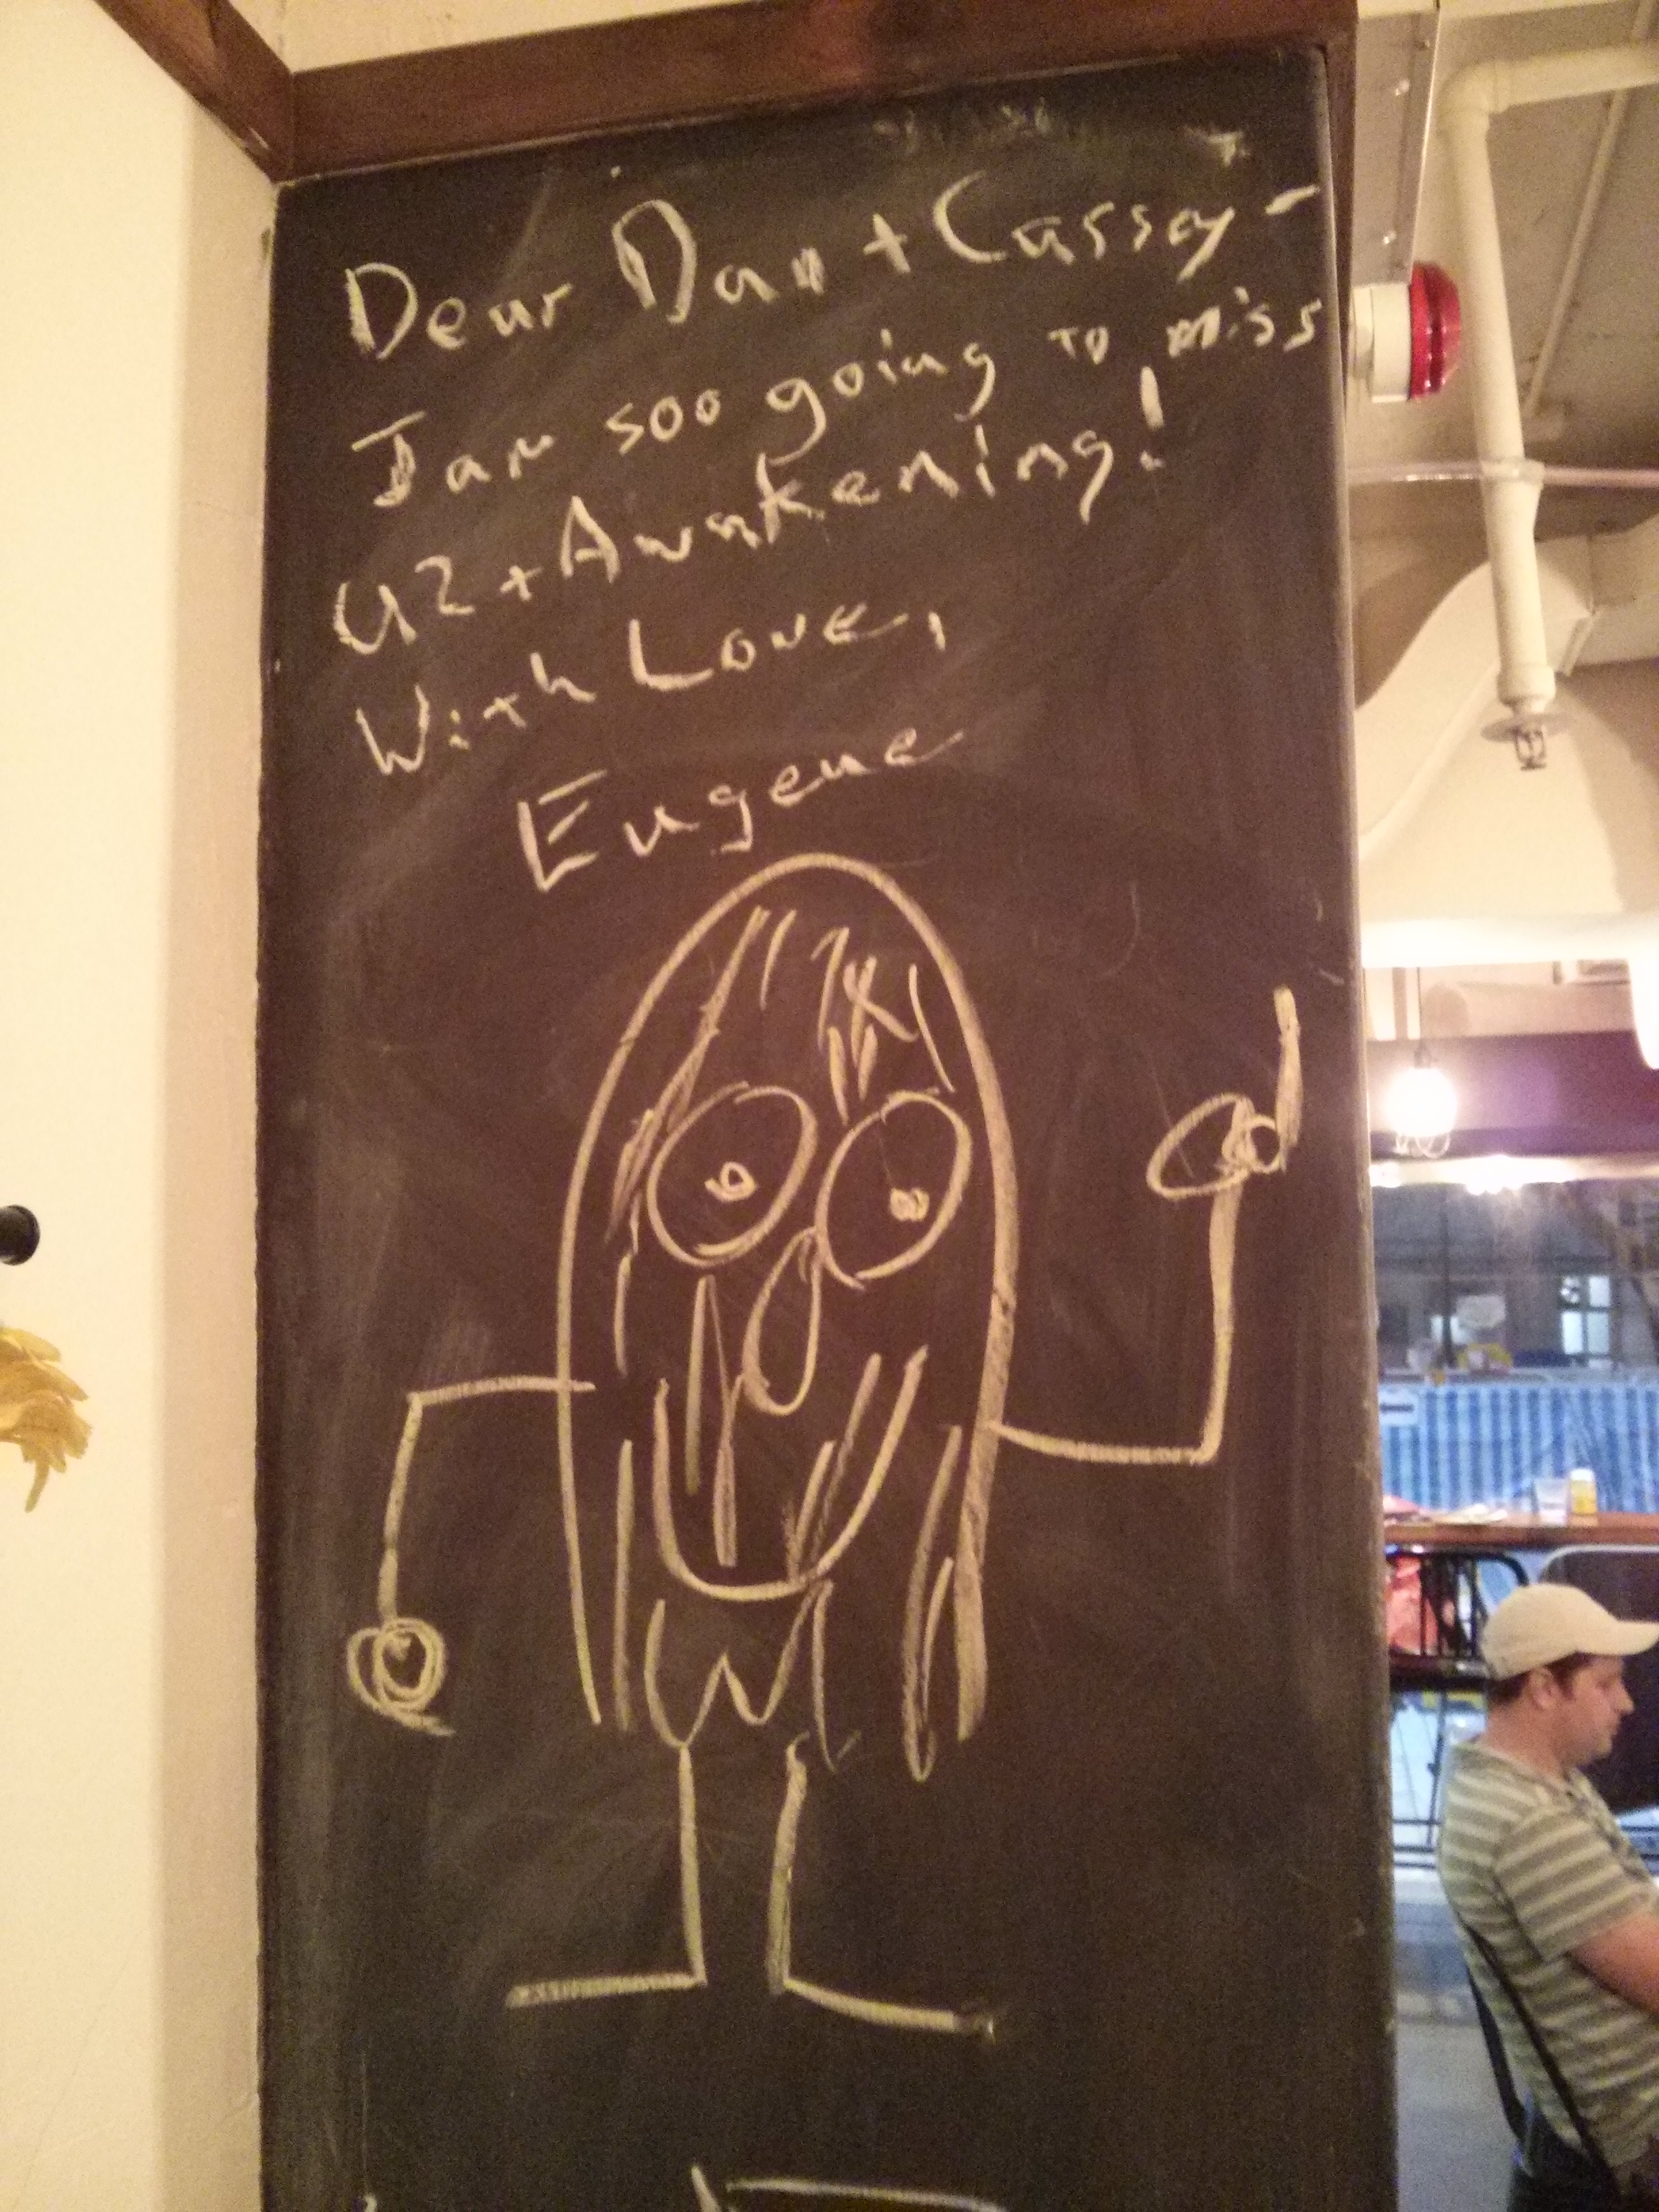 Dear Dan + Cassey -
I am soo going to miss
U2 + Awakening!
With Love,
Eugene